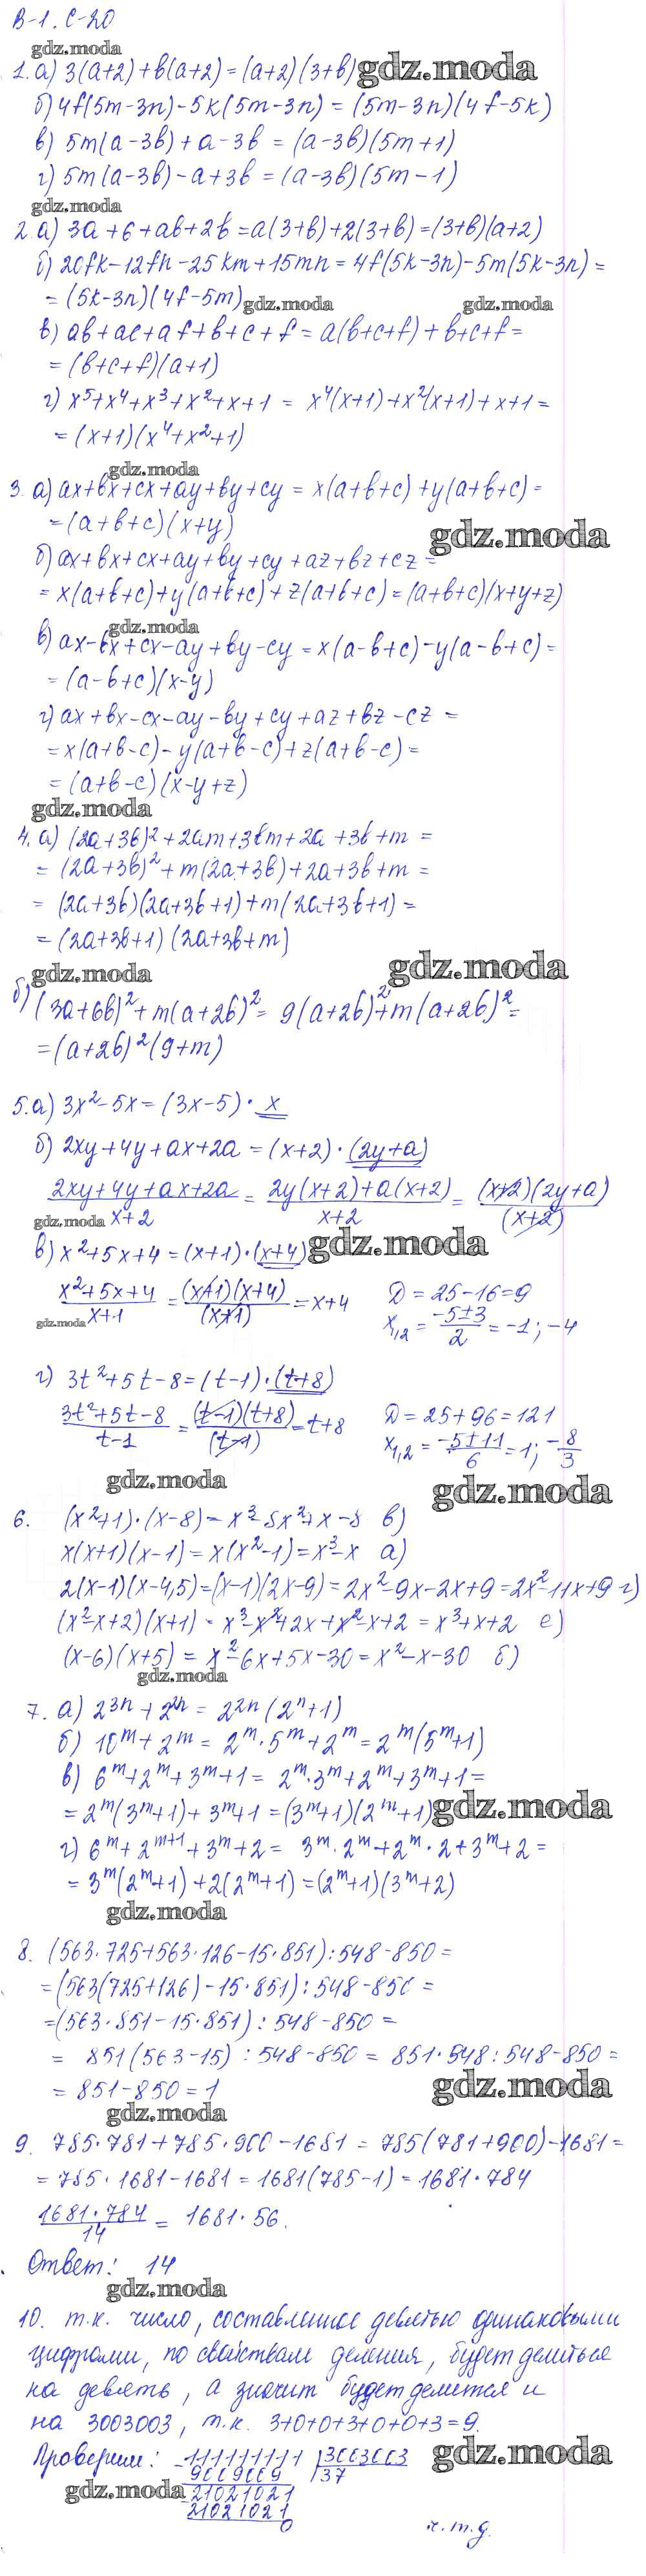 В-1. С-20
gdz.moda
1. а) 3(a+2)+b(a+2)=(a+2)(3+b) gdz.moda
б) 4f(5m-3n)-5k(5m-3n) = (5m-3n)(4f-5k)
в) 5m(a-3b)+a-3b = (a-3b)(5m+1)
г) 5m(a-3b)-a+3b=(a-3b)(5m-1)
gdz.moda
2. а) 3a+6+ab+2b=a(3+b)+2(3+b)=(3+b)(a+2)
б) 20fk-12fn-25km+15mn=4f(5k-3n)-5m(5k-3n)=
=(5k-3n)(4f-5m) gdz.moda gdz.moda
в) ab+ac+af+b+c+f=a(b+c+f)+b+c+f=
=(b+c+f)(a+1)
г) x⁵+x⁴+x³+x²+x+1 = x⁴(x+1)+x²(x+1)+x+1=
=(x+1)(x⁴+x²+1)
gdz.moda
3. а) ax+bx+cx+ay+by+cy = x(a+b+c)+y(a+b+c)=
=(a+b+c)(x+y) gdz.moda
б) ax+bx+cx+ay+by+cy+az+bz+cz=
=x(a+b+c)+y(a+b+c)+z(a+b+c)=(a+b+c)(x+y+z)
gdz.moda
в) ax-bx+cx-ay+by-cy=x(a-b+c)-y(a-b+c)=
=(a-b+c)(x-y)
г) ax+bx-cx-ay-by+cy+az+bz-cz =
=x(a+b-c)-y(a+b-c)+z(a+b-c)=
=(a+b-c)(x-y+z)
gdz.moda
4. а) (2a+3b)²+2am+3bm+2a+3b+m =
= (2a+3b)²+m(2a+3b)+2a+3b+m =
= (2a+3b)(2a+3b+1)+m(2a+3b+1)=
=(2a+3b+1)(2a+3b+m)
gdz.moda gdz.moda
б) (3a+6b)²+m(a+2b)²= 9(a+2b)²+m(a+2b)²=
=(a+2b)²(9+m)
5. а) 3x²-5x=(3x-5)·x
б) 2xy+4y+ax+2a=(x+2)·(2y+a)
2xy+4y+ax+2a = 2y(x+2)+a(x+2) = (x+2)(2y+a)
gdz.moda x+2 x+2 (x+2)
в) x²+5x+4=(x+1)·(x+4) gdz.moda
x²+5x+4 = (x+1)(x+4) = x+4 D=25-16=9
gdz.moda x+1 (x+1) x₁,₂ = -5±3 / 2 = -1; -4
г) 3t²+5t-8=(t-1)·(t+8)
3t²+5t-8 = (t-1)(t+8) = t+8 D=25+96=121
t-1 (t-1) x₁,₂ = -5±11 / 6 = 1; -8/3
gdz.moda gdz.moda
6. (x²+1)·(x-8)=x³-8x²+x-8 в)
x(x+1)(x-1)=x(x²-1)=x³-x а)
2(x-1)(x-4,5)=(x-1)(2x-9)=2x²-9x-2x+9=2x²-11x+9 г)
(x²-x+2)(x+1) = x³-x²+2x+x²-x+2=x³+x+2 е)
(x-6)(x+5) = x²-6x+5x-30=x²-x-30 б)
gdz.moda
7. а) 2³ⁿ+2²ⁿ= 2²ⁿ(2ⁿ+1)
б) 10ᵐ+2ᵐ= 2ᵐ·5ᵐ+2ᵐ=2ᵐ(5ᵐ+1)
в) 6ᵐ+2ᵐ+3ᵐ+1= 2ᵐ·3ᵐ+2ᵐ+3ᵐ+1=
=2ᵐ(3ᵐ+1)+3ᵐ+1=(3ᵐ+1)(2ᵐ+1) gdz.moda
г) 6ᵐ+2ᵐ⁺¹+3ᵐ+2= 3ᵐ·2ᵐ+2ᵐ·2+3ᵐ+2=
=3ᵐ(2ᵐ+1)+2(2ᵐ+1)=(2ᵐ+1)(3ᵐ+2)
gdz.moda
8. (563·725+563·126-15·851):548-850=
=(563(725+126)-15·851):548-850=
=(563·851-15·851):548-850=
= 851(563-15):548-850=851·548:548-850=
=851-850=1 gdz.moda
gdz.moda
9. 785·781+785·900-1681=785(781+900)-1681=
=785·1681-1681=1681(785-1)=1681·784
1681·784 / 14 = 1681·56.
Ответ: 14
gdz.moda
10. т.к. число, составленное девятью одинаковыми
цифрами, по свойствам деления, будет делиться
на девять, а значит будет делится и
на 3003003, т.к. 3+0+0+3+0+0+3=9.
Проверим: 111111111 3003003 gdz.moda
9009009 37
gdz.moda 21021021
21021021
0
ч.т.д.